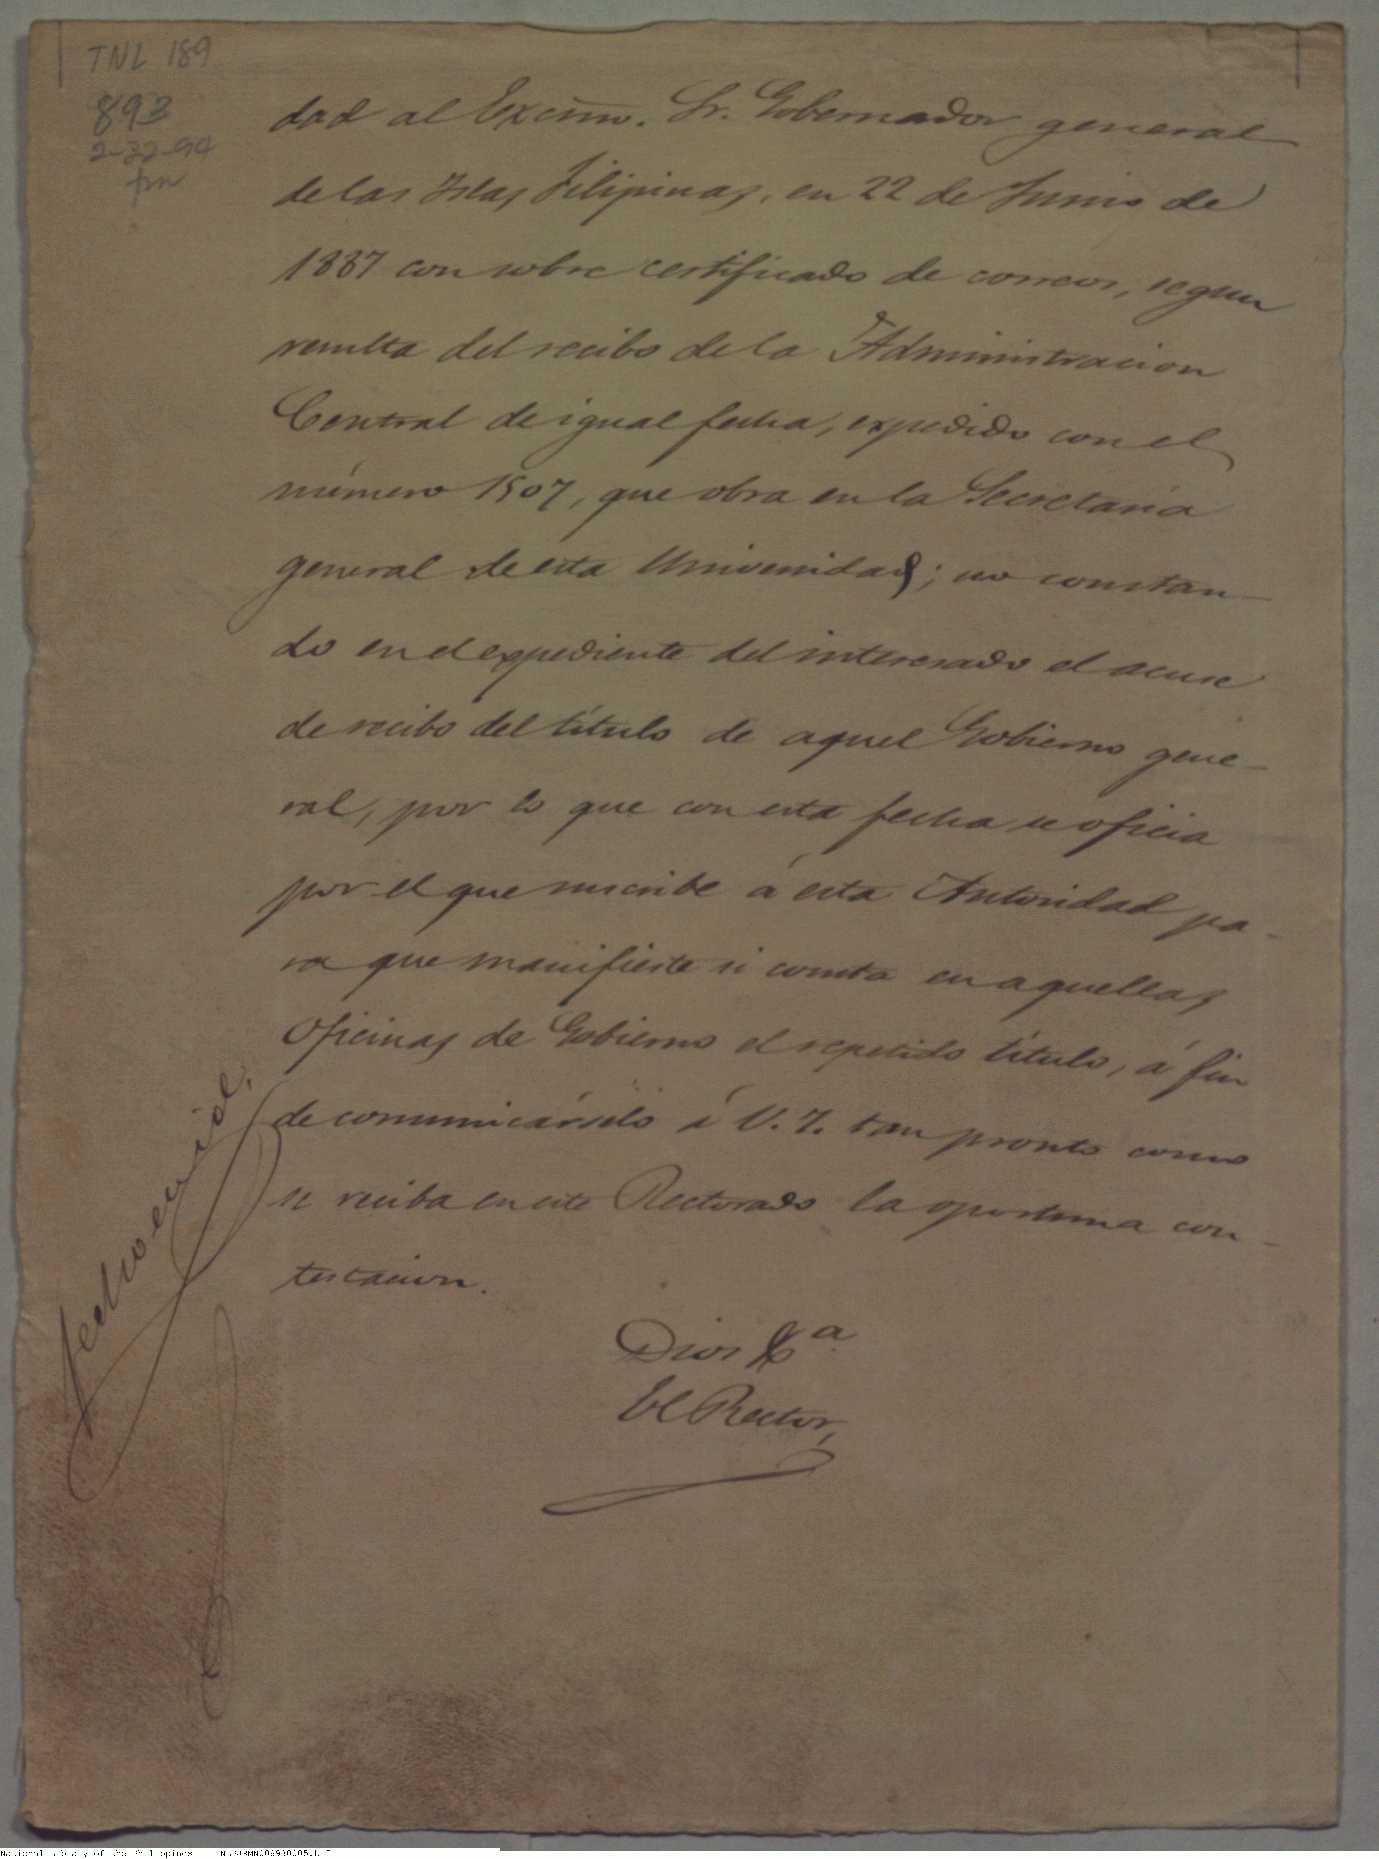 TNL 189
893
2-22-94
dad al Excmo. Sr. Gobernador general
de las Islas Filipinas, en 22 de Junio de
1887 con sobre certificado de correos, segun
resulta del recibo de la Administracion
Central de igual fecha, expedido con el
número 1507, que obra en la Secretaría
general de esta Universidad; no constan-
do en el expediente del interesado el acuse
de recibo del título de aquel Gobierno gene-
ral, por lo que con esta fecha se oficia
por el que suscribe á esta Autoridad pa-
ra que manifieste si consta en aquellas
Oficinas de Gobierno el repetido título, á fin
de comunicárselo á V. I. tan pronto como
se reciba en este Rectorado la oportuna con-
testacion.
Dios &a
El Rector,
National Library of the Philippines